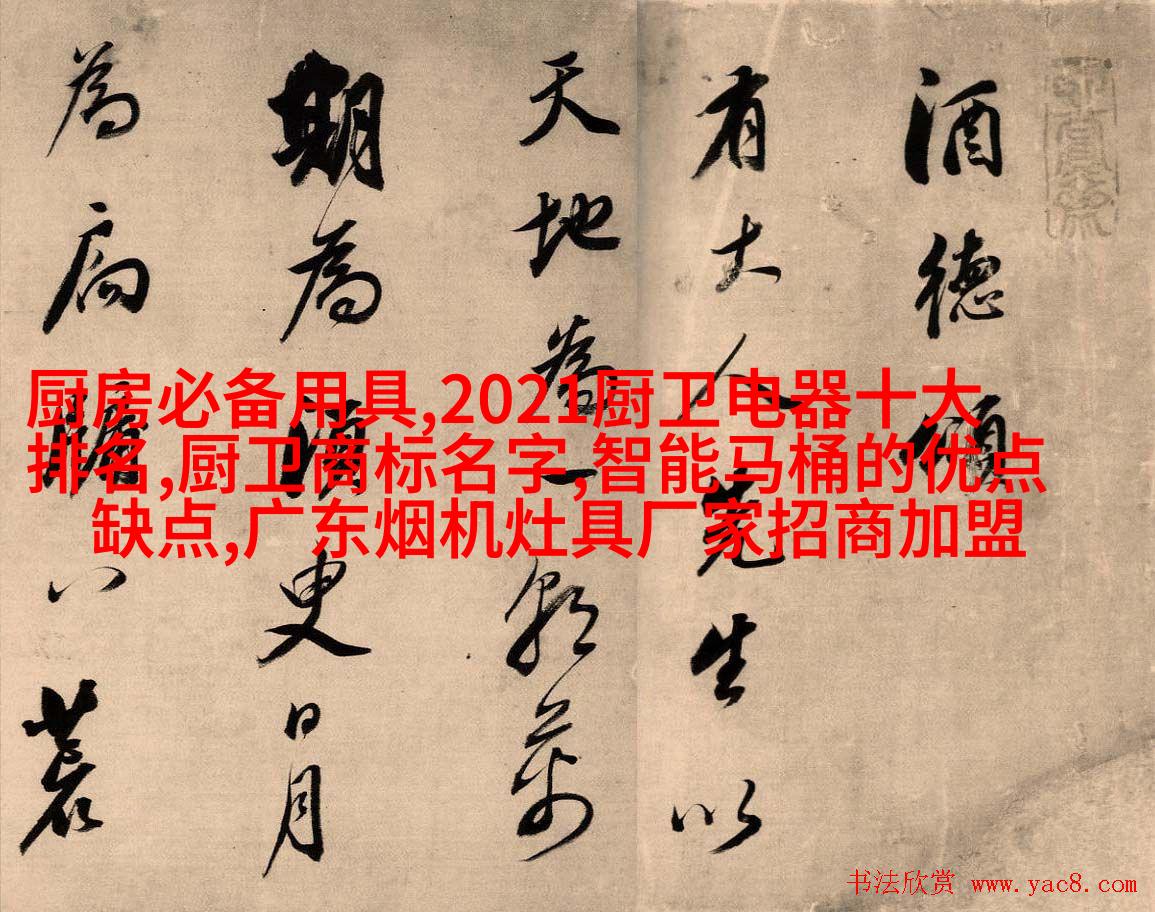 酒德頌
有大人先生以
天地為一朝萬
期為須臾日月
為扃牖八荒
厨房必备用具,2021厨卫电器十大
排名,厨卫商标名字,智能马桶的优点
缺点,广东烟机灶具厂家招商加盟
书法欣赏 www.yac8.com